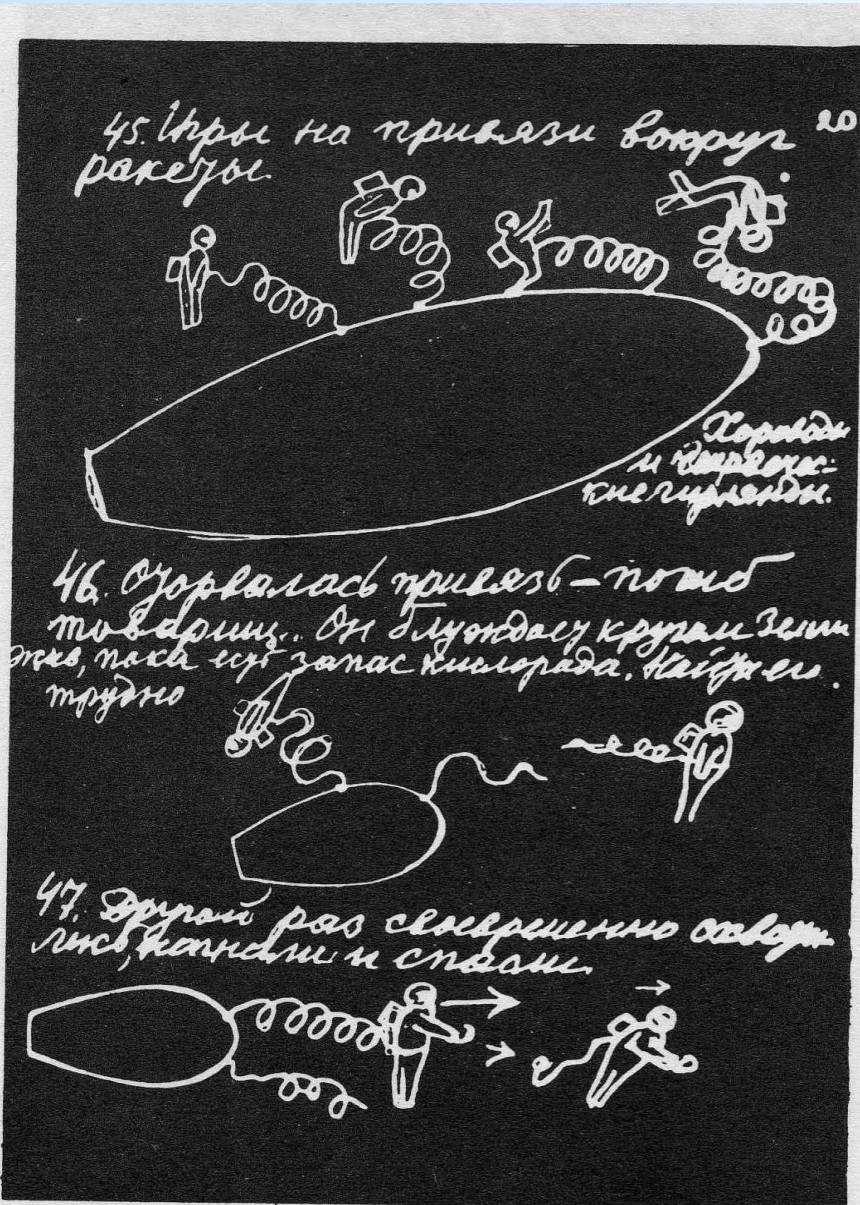 20
45. Игры на привязи вокруг
ракеты.
Хороводы
и
кие гирлянды.
46. Оторвалась привязь – погиб
товарищ.. Он блуждает кругом Земли
жив, пока есть запас кислорода. Найти его
трудно
47. Другой раз своевременно схвати
лись, нагнали и спасли.